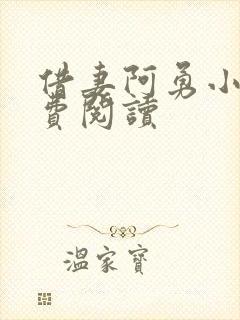 借妻阿勇小
費閱讀
溫家寶